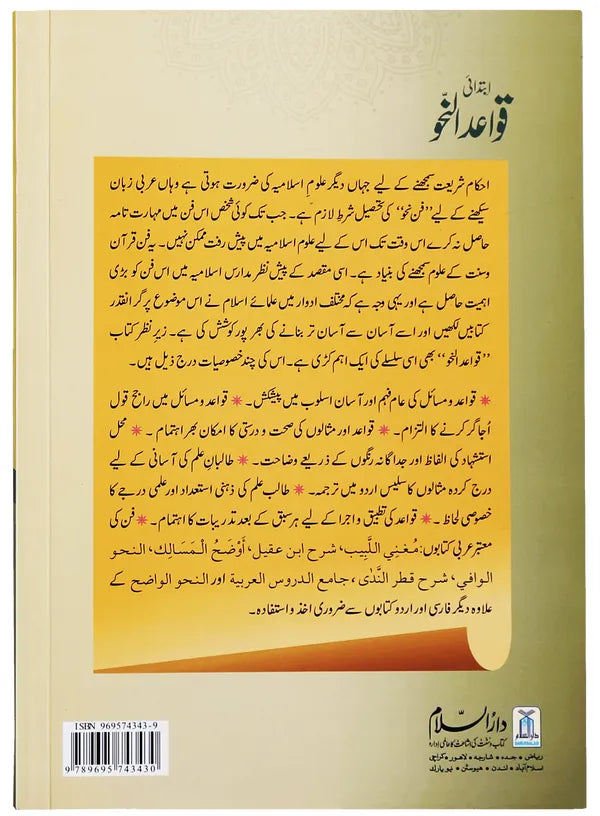 ابتدائی
قواعد النحو
احکام شریعت سمجھنے کے لیے جہاں دیگر علوم اسلامیہ کی ضرورت ہوتی ہے وہاں عربی زبان
سیکھنے کے لیے ’’فن نحو‘‘ کی تحصیل شرطِ لازم ہے۔ جب تک کوئی شخص اس فن میں مہارت تامہ
حاصل نہ کرے اس وقت تک اس کے لیے علوم اسلامیہ میں پیش رفت ممکن نہیں۔ یہ فن قرآن
وسنت کے علوم سمجھنے کی بنیاد ہے۔ اسی مقصد کے پیش نظر مدارس اسلامیہ میں اس فن کو بڑی
اہمیت حاصل ہے اور یہی وجہ ہے کہ مختلف ادوار میں علمائے اسلام نے اس موضوع پر گرانقدر
کتابیں لکھیں اور اسے آسان سے آسان تر بنانے کی بھر پور کوشش کی ہے۔ زیر نظر کتاب
’’قواعد النحو‘‘ بھی اسی سلسلے کی ایک اہم کڑی ہے۔ اس کی چند خصوصیات درج ذیل ہیں۔
✷ قواعد و مسائل کی عام فہم اور آسان اسلوب میں پیشکش۔ ✷ قواعد و مسائل میں راجح قول
اُجاگر کرنے کا التزام۔ ✷ قواعد اور مثالوں کی صحت و درستی کا امکان بھر اہتمام۔ ✷ محل
استشہاد کی الفاظ اور جداگانہ رنگوں کے ذریعے وضاحت۔ ✷ طالبانِ علم کی آسانی کے لیے
درج کردہ مثالوں کا سلیس اردو میں ترجمہ۔ ✷ طالب علم کی ذہنی استعداد اور علمی درجے کا
خصوصی لحاظ۔ ✷ قواعد کی تطبیق و اجرا کے لیے ہر سبق کے بعد تدریبات کا اہتمام۔ ✷ فن کی
معتبر عربی کتابوں: مُغني اللَّبِيب، شرح ابن عقيل، أَوْضَحُ الْمَسَالِك، النحو
الوافي، شرح قطر النَّدٰى، جامع الدروس العربية اور النحو الواضح کے
علاوہ دیگر فارسی اور اردو کتابوں سے ضروری اخذ و استفادہ۔
دارالسلام
کتاب و سنت کی اشاعت کا عالمی ادارہ
ریاض • جدہ • شارجہ • لاہور • کراچی
اسلام آباد • لندن • ہیوسٹن • نیو یارک
دارالسلام
ISBN 969574343-9
9 789695 743430